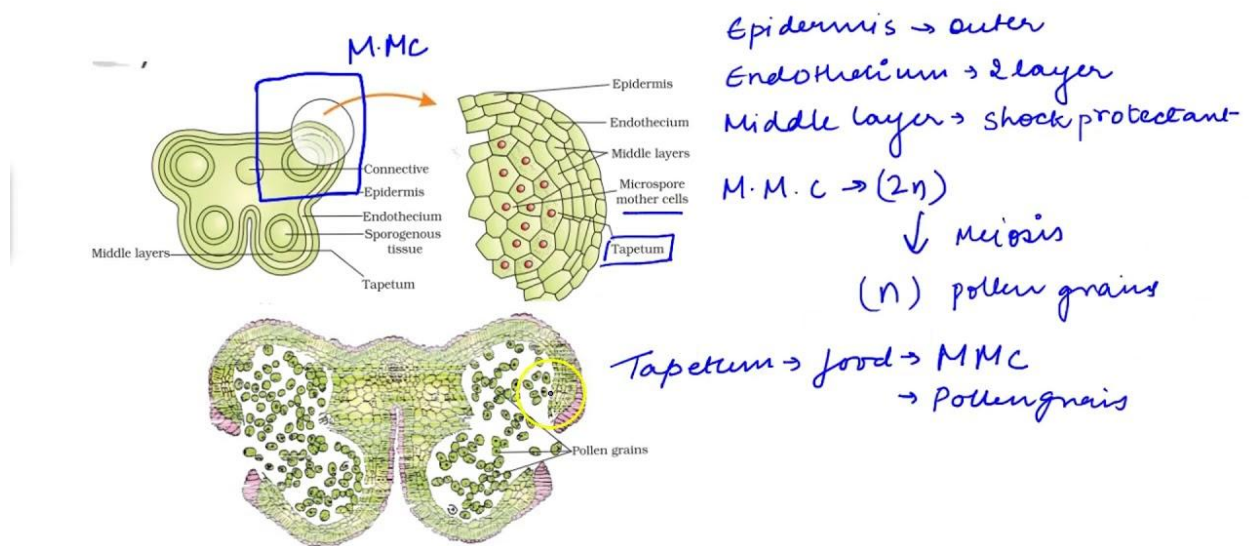 M.MC
Connective
Epidermis
Endothecium
Sporogenous
tissue
Middle layers
Tapetum
Epidermis
Endothecium
Middle layers
Microspore
mother cells
Tapetum
Pollen grains
Epidermis → outer
Endothecium → 2 layer
Middle layer → shock protectant
M.M.C → (2n)
↓ Meiosis
(n) pollen grains
Tapetum → food → MMC
→ Pollen grais